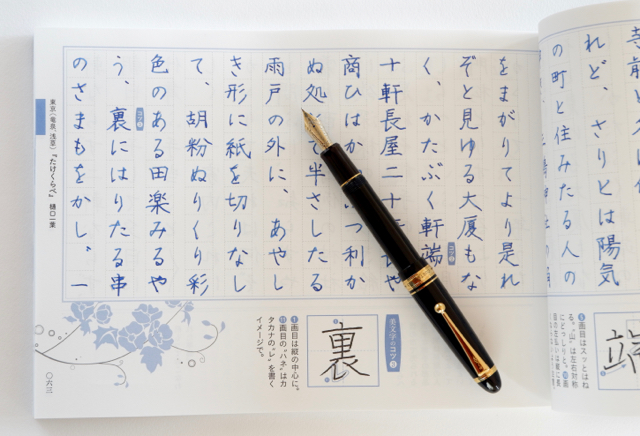 寺前と
れど、さりとは陽気
の町と住みたる人の
三嶋神社の角
をまがりてより是れ
ぞと見ゆる大厦もな
く、かたぶく軒端
十軒長屋二十軒長や
商ひはか つ利か
ぬ処 て半さしたる
雨戸の外に、あやし
き形に紙を切りなし
て、胡粉ぬりくり彩
色のある田楽みるや
う、裏にはりたる串
のさまもをかし、一
東京(竜泉、浅草)『たけくらべ』 樋口一葉
端
画目はスッとはね
る。「山」は左右対称
にどっしりと。
美文字のコツ❷
裏
画目は縦の中心に。
画目の“ハネ”はカ
タカナの“レ”を書く
イメージで。
〇六三